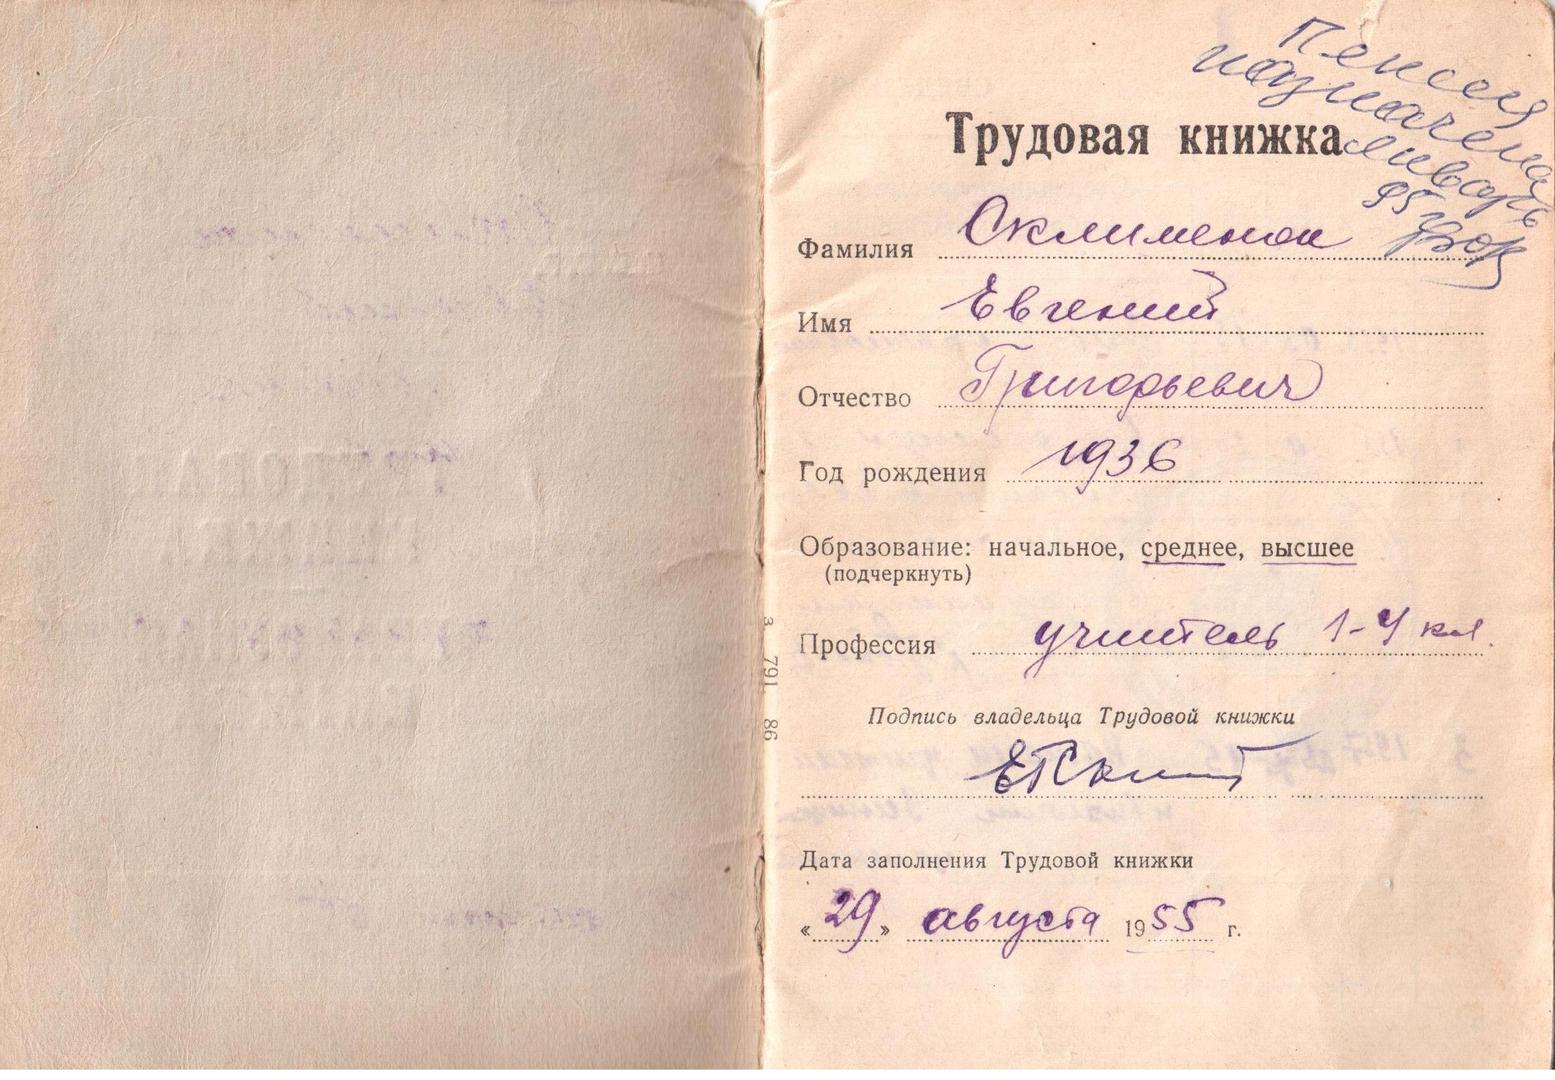 Пенсия
назначена
январь
95г
Трудовая книжка
Фамилия
Имя Евгений
Отчество Григорьевич
Год рождения 1936
Образование: начальное, среднее, высшее
(подчеркнуть)
Профессия учитель 1-4 кл.
Подпись владельца Трудовой книжки
Дата заполнения Трудовой книжки
«29» августа 1955 г.
з. 791 86